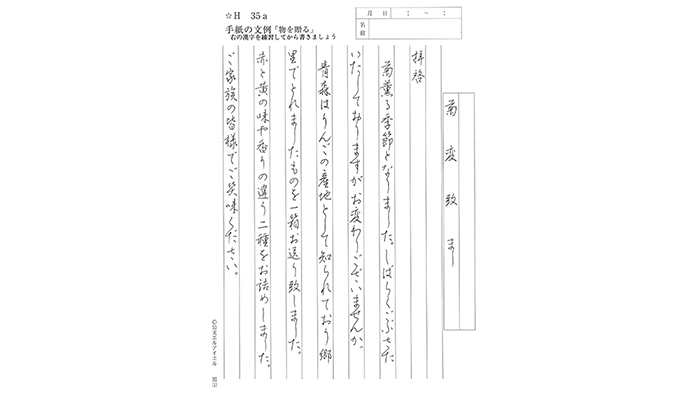 ☆H 35a
手紙の文例「物を贈る」
右の漢字を練習してから書きましょう
月 日 : ~ :
名前
菊 変 致 まし
拝啓
菊薫る季節となりました。しばらくごぶさた
いたしておりますがお変わりございませんか。
青森はりんごの産地として知られており郷
里でとれましたものを一箱お送り致しました。
赤と黄の味や香りの違う二種をお詰めしました。
ご家族の皆様でご笑味ください。
©公文エルアイエル